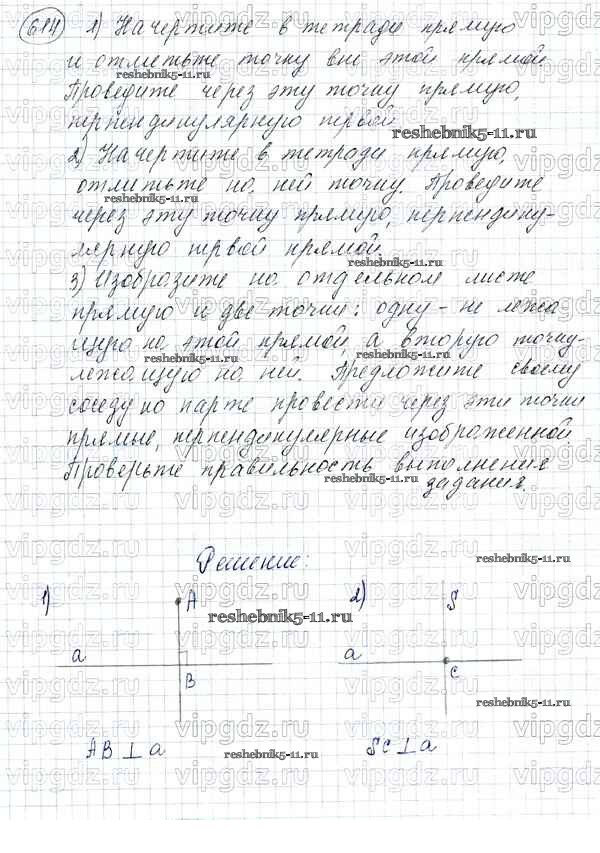 614 1) Начертите в тетради прямую
и отметьте точку вне этой прямой.
reshebnik5-11.ru
Проведите через эту точку прямую,
перпендикулярную первой.
reshebnik5-11.ru
2) Начертите в тетради прямую,
отметьте на ней точку. Проведите
reshebnik5-11.ru
через эту точку прямую, перпендику-
лярную первой прямой.
reshebnik5-11.ru
3) Изобразите на отдельном листе
прямую и две точки: одну - не лежа
щую на этой прямой, а вторую точку-
reshebnik5-11.ru reshebnik5-11.ru
лежащую на ней. Предложите своему
соседу по парте провести через эти точки
прямые, перпендикулярные изображенной.
Проверьте правильность выполнения
reshebnik5-11.ru
задания.
Решение:
reshebnik5-11.ru
1) A 2) S
reshebnik5-11.ru
a B a C
reshebnik5-11.ru
AB ⊥ a SC ⊥ a
reshebnik5-11.ru reshebnik5-11.ru
vipgdz.ru